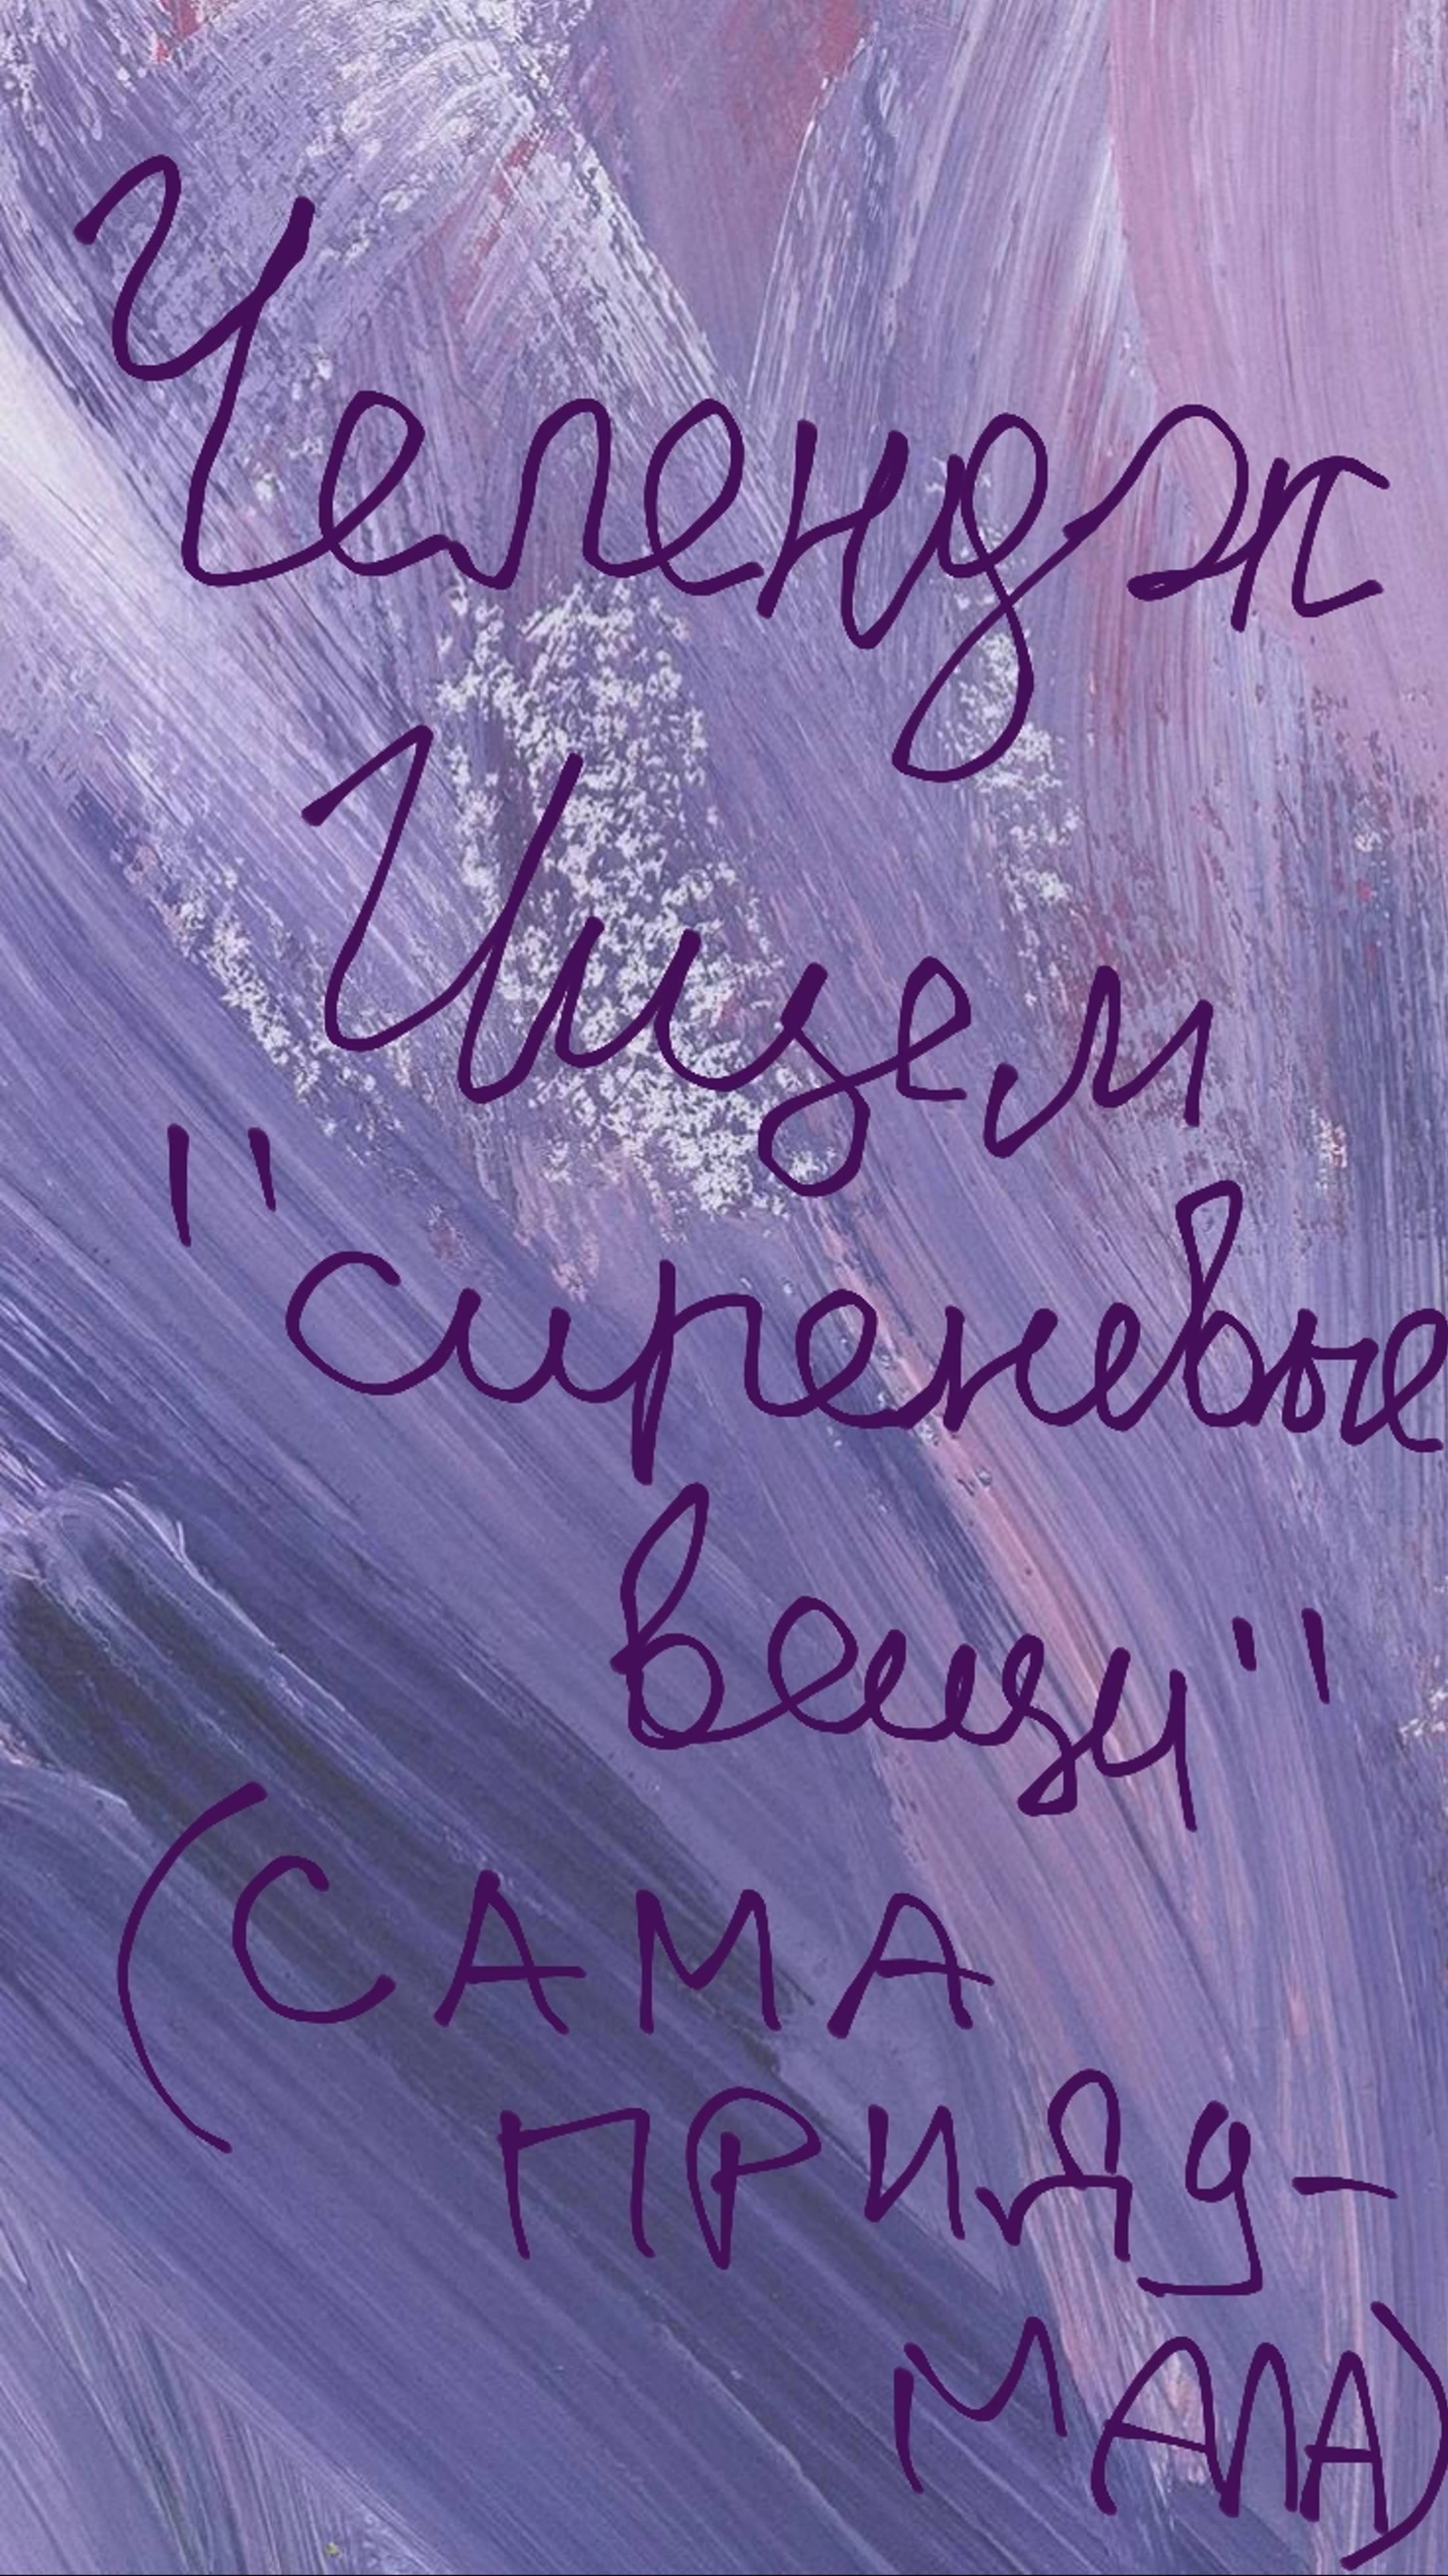 Челендж
Ищем
"сиреневые
вещи"
(САМА
ПРИДУ-
МАЛА)